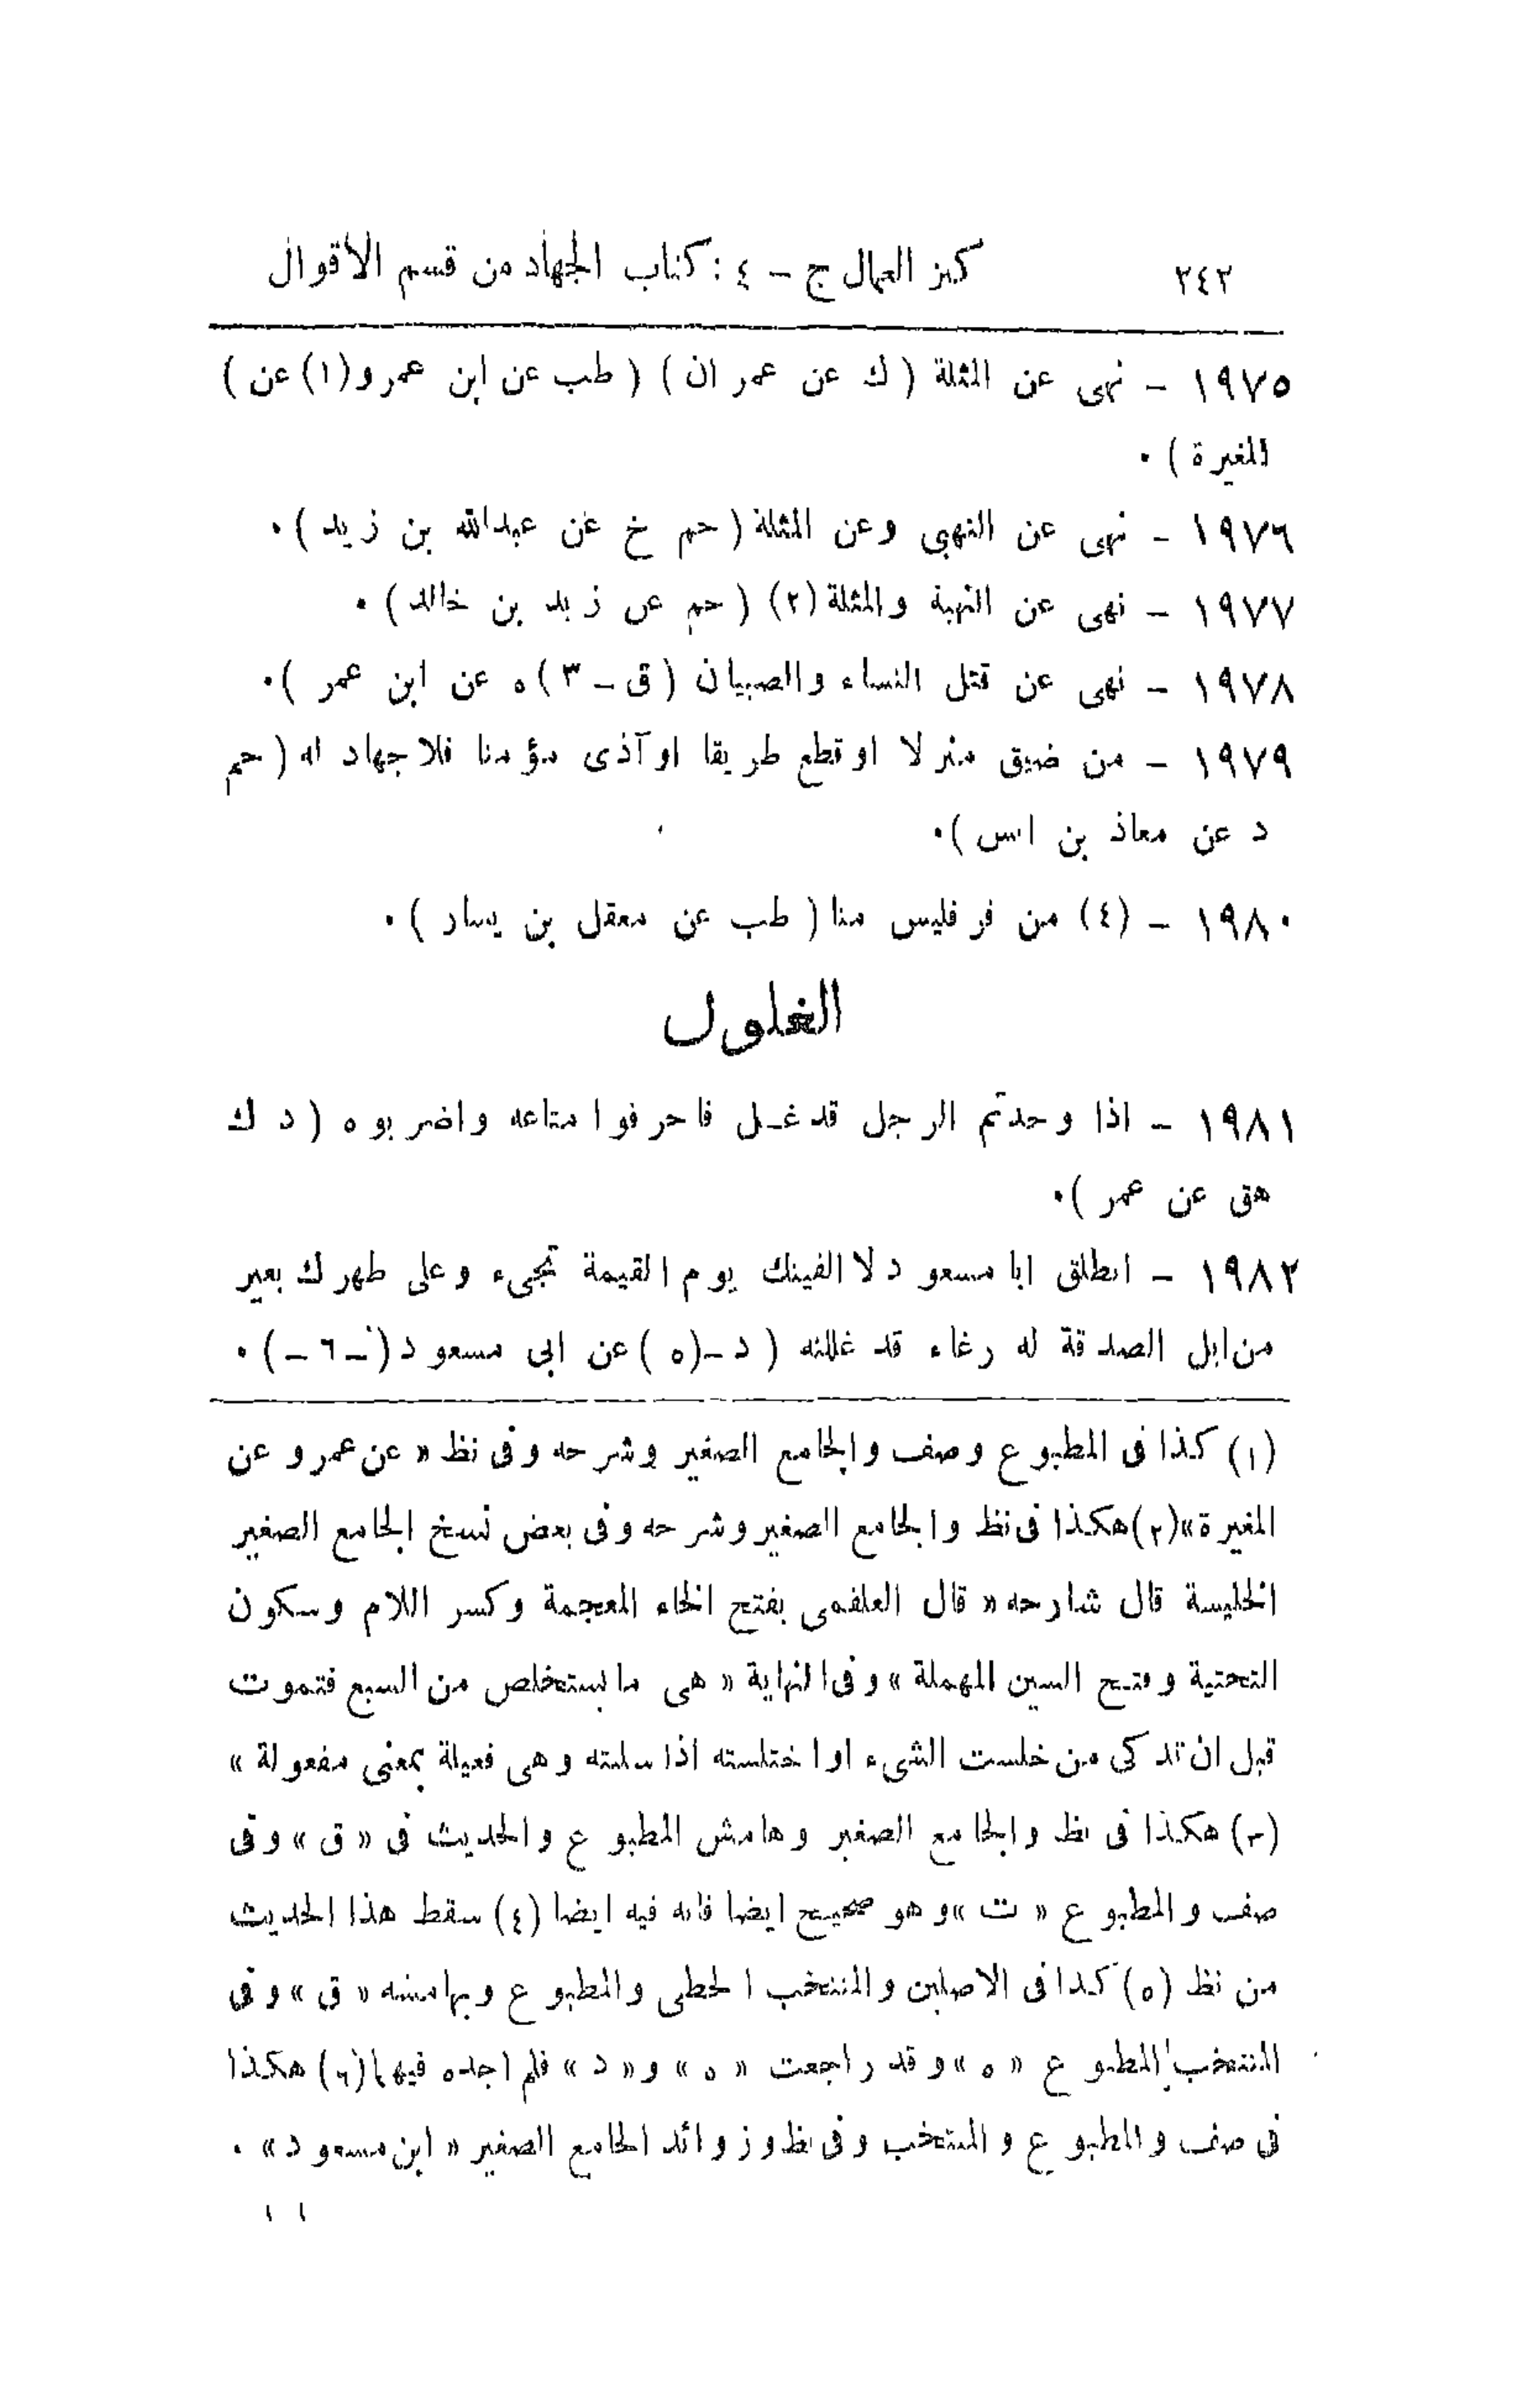 ٢٤٢ كنز العمال ج - ٤ : كتاب الجهاد من قسم الاقوال
١٩٧٥ - نهى عن المثلة ( ك عن عمران ) ( طب عن ابن عمرو (١) عن )
المغيرة ) ٠
١٩٧٦ - نهى عن النهبى وعن المثلة ( حم خ عن عبدالله بن زيد ) ٠
١٩٧٧ - نهى عن النهبة والمثلة (٢) ( حم عن زيد بن خالد ) ٠
١٩٧٨ - نهى عن قتل النساء والصبيان ( ق - ٣ ) ه عن ابن عمر ) ٠
١٩٧٩ - من ضيق منزلا او قطع طريقا او آذى مؤمنا فلا جهاد له ( حم
د عن معاذ بن انس ) ٠
١٩٨٠ - (٤) من فر فليس منا ( طب عن معقل بن يسار ) ٠
الغلول
١٩٨١ - اذا وجدتم الرجل قد غـل فاحرقوا متاعه واضربوه ( د ك
هق عن عمر ) ٠
١٩٨٢ - انطلق ابا مسعود لا الفينك يوم القيمة تجىء وعلى ظهرك بعير
من ابل الصدقة له رغاء قد غللته ( د - (٥) عن ابى مسعود ( - ٦ - ) ٠
(١) كذا فى المطبوع وصف والجامع الصغير وشرحه وفى نظ « عن عمرو عن
المغيرة » (٢) هكذا فى نظ والجامع الصغير وشرحه وفى بعض نسخ الجامع الصغير
الخليسة قال شارحه « قال العلقمى بفتح الخاء المعجمة وكسر اللام وسكون
التحتية وفتح السين المهملة » وفى النهاية « هى ما يستخلص من السبع فتموت
قبل ان تذكى من خلست الشىء او اختلسته اذا سلبته وهى فعيلة بمعنى مفعولة »
(٣) هكذا فى نظ والجامع الصغير وهامش المطبوع والحديث فى « ق » وفى
صف والمطبوع « ت » وهو صحيح ايضا فانه فيه ايضا (٤) سقط هذا الحديث
من نظ (٥) كذا فى الاصلين والمنتخب الخطى والمطبوع وبهامشه « ق » وفى
المنتخب المطبوع « ه » وقد راجعت « ه » و « د » فلم اجده فيهما (٦) هكذا
فى صف والمطبوع والمنتخب وفى نظ وزوائد الجامع الصغير « ابن مسعود » ٠